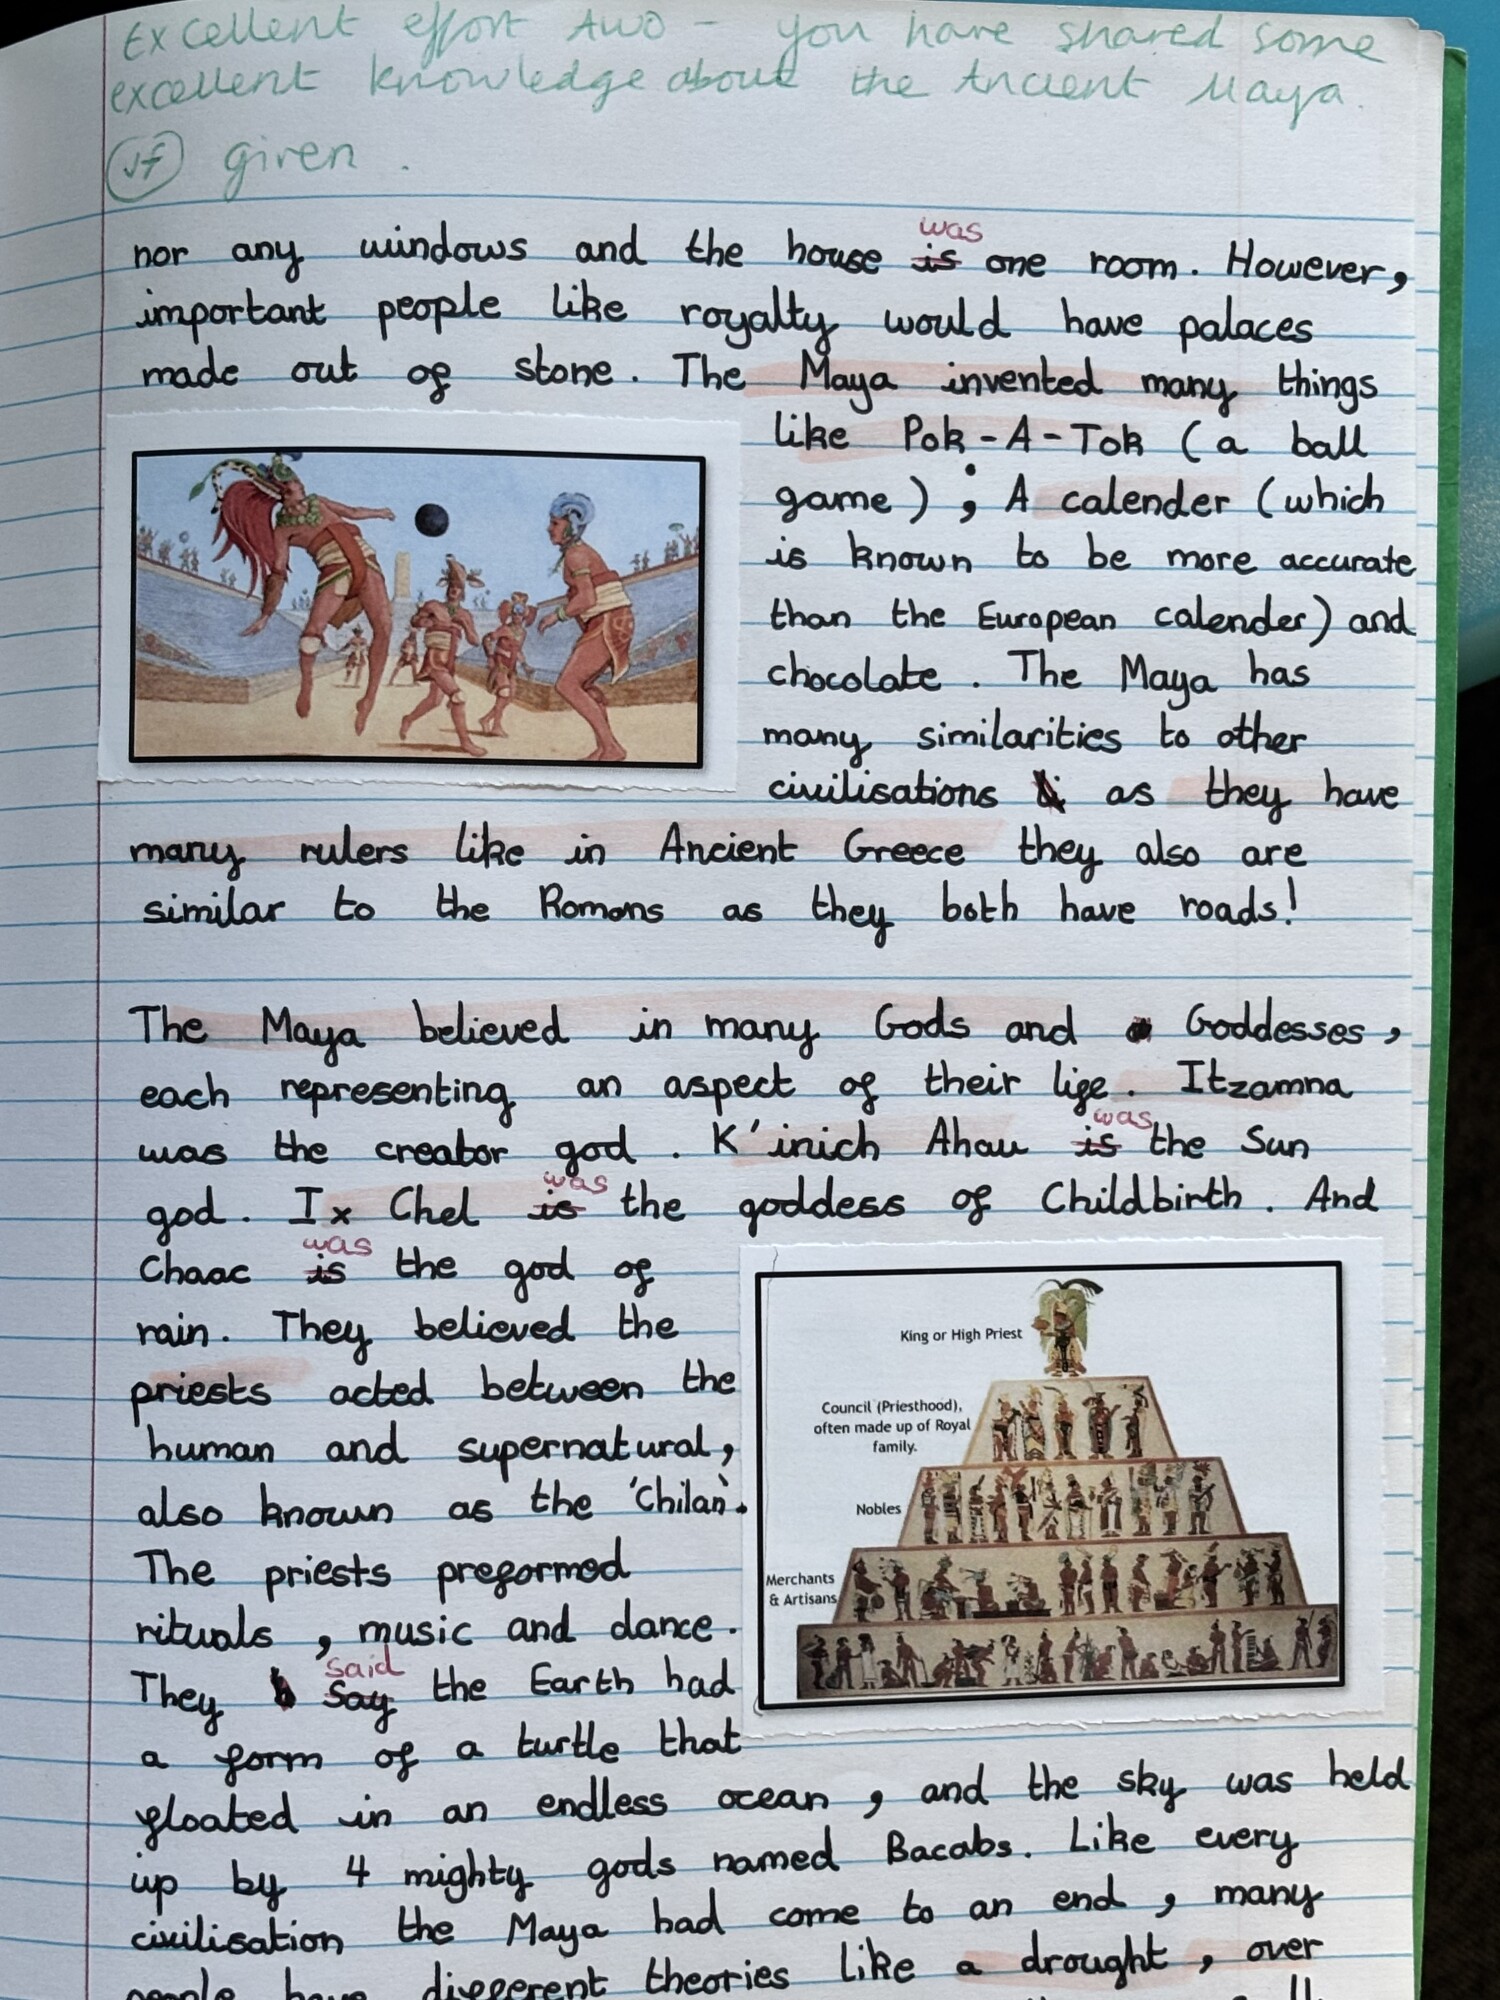 Excellent effort AWO - you have shared some
excellent knowledge about the Ancient Maya.
vf given.
nor any windows and the house is was one room. However,
important people like royalty would have palaces
made out of stone. The Maya invented many things
like Pok-A-Tok (a ball
game); A calender (which
is known to be more accurate
than the European calender) and
chocolate. The Maya has
many similarities to other
civilisations as they have
many rulers like in Ancient Greece they also are
similar to the Romans as they both have roads!
The Maya believed in many Gods and Goddesses,
each representing an aspect of their life. Itzamna
was the creator god. K'inich Ahau is was the Sun
god. Ix Chel is was the goddess of Childbirth. And
Chaac is was the god of
rain. They believed the
priests acted between the
human and supernatural,
also known as the 'Chilan'.
The priests preformed
rituals, music and dance.
They say said the Earth had
a form of a turtle that
floated in an endless ocean, and the sky was held
up by 4 mighty gods named Bacabs. Like every
civilisation the Maya had come to an end, many
people have different theories like a drought, over
King or High Priest
Council (Priesthood),
often made up of Royal
family.
Nobles
Merchants
& Artisans